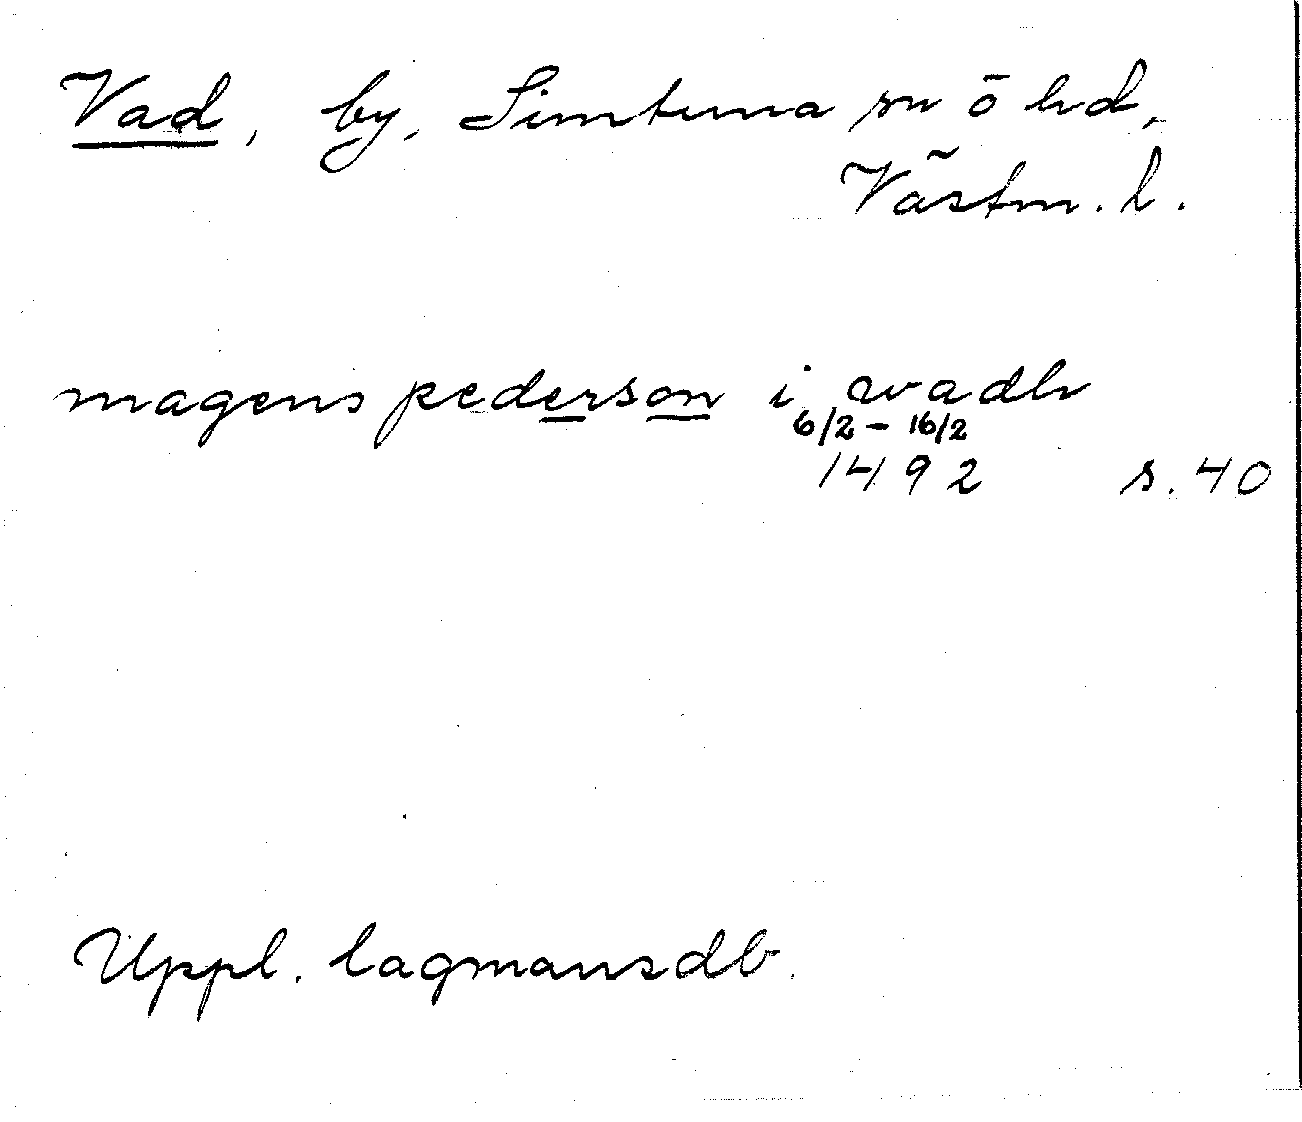 Vad, by, Simtuna sn ō hd,
Västm. l.
magens pederson i wadh
6/2 - 16/2
1492 s. 40
Uppl. lagmansdb.